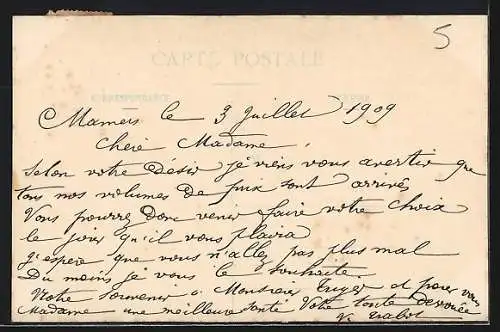 5
CARTE POSTALE
CORRESPONDANCE
Mamers le 3 Juillet 1909
Chère Madame,
Selon votre désir je viens vous avertir que
tous nos volumes de prix sont arrivés
Vous pourrez donc venir faire votre choix
le jour qu'il vous plaira
J'espère que vous n'allez pas plus mal
Du moins je vous le souhaite.
Votre souvenir à Monsieur et pour vous
Madame une meilleure santé Votre toute dévouée